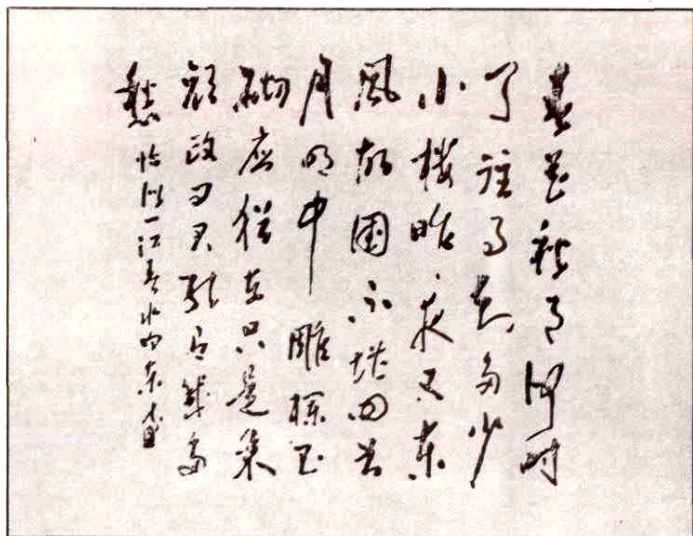 春花秋月何时
了往事知多少
小楼昨夜又东
风故国不堪回首
月明中雕栏玉
砌应犹在只是朱
颜改问君能有几多
愁恰似一江春水向东